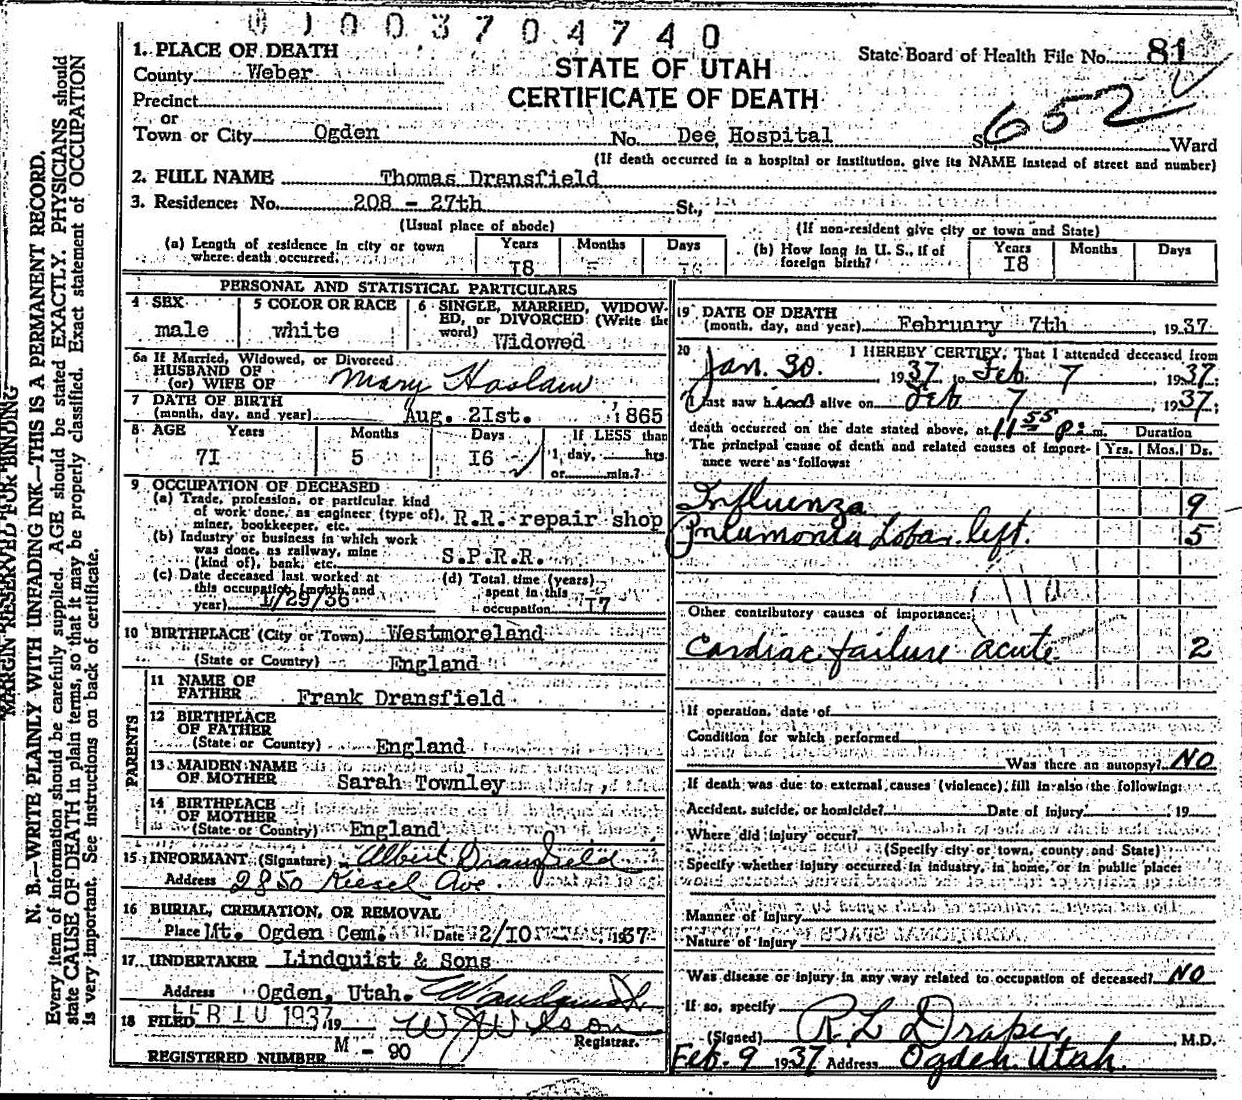 0 1 0 0 3 7 0 4 7 4 0
1. PLACE OF DEATH
County Weber
Precinct
or
Town or City Ogden
STATE OF UTAH
CERTIFICATE OF DEATH
State Board of Health File No. 81
652
No. Dee Hospital St., Ward
(If death occurred in a hospital or institution, give its NAME instead of street and number)
2. FULL NAME Thomas Dransfield
3. Residence: No. 208 - 27th St.,
(Usual place of abode) (If non-resident give city or town and State)
(a) Length of residence in city or town where death occurred. Years I8 Months 5 Days
(b) How long in U. S., if of foreign birth? Years I8 Months Days
PERSONAL AND STATISTICAL PARTICULARS
4 SEX male
5 COLOR OR RACE white
6 SINGLE, MARRIED, WIDOWED, or DIVORCED (Write the word) Widowed
6a If Married, Widowed, or Divorced
HUSBAND OF
(or) WIFE OF Mary Haslam
7 DATE OF BIRTH
(month, day, and year) Aug. 2Ist. 1865
8 AGE Years 7I Months 5 Days I6 If LESS than 1, day, hrs. or min.?
9 OCCUPATION OF DECEASED
(a) Trade, profession, or particular kind
of work done, as engineer (type of),
miner, bookkeeper, etc. R.R. repair shop
(b) Industry or business in which work
was done, as railway, mine
(kind of), bank, etc. S.P.R.R.
(c) Date deceased last worked at
this occupation (month and
year) 1/29/36
(d) Total time (years)
spent in this
occupation I7
10 BIRTHPLACE (City or Town) Westmoreland
(State or Country) England
PARENTS
11 NAME OF
FATHER Frank Dransfield
12 BIRTHPLACE
OF FATHER
(State or Country) England
13 MAIDEN NAME
OF MOTHER Sarah Townley
14 BIRTHPLACE
OF MOTHER
(State or Country) England
15 INFORMANT (Signature) Albert Dransfield
Address 2850 Kiesel Ave.
16 BURIAL, CREMATION, OR REMOVAL
Place Mt. Ogden Cem. Date 2/I0 1937
17 UNDERTAKER Lindquist & Sons
Address Ogden, Utah.
18 FILED FEB 10 1937 19
W J Wilson
Registrar.
REGISTERED NUMBER M - 90
19 DATE OF DEATH
(month, day, and year) February 7th 1937
20 I HEREBY CERTIFY, That I attended deceased from
Jan. 30. 1937 to Feb. 7 1937;
I last saw him alive on Feb 7 1937;
death occurred on the date stated above, at 11 55 P. m.
The principal cause of death and related causes of importance were as follows:
Duration
Yrs. Mos. Ds.
Influenza 9
Pneumonia Lobar left. 5
Other contributory causes of importance:
Cardiac failure acute 2
If operation, date of
Condition for which performed
Was there an autopsy? NO
If death was due to external causes (violence) fill in also the following:
Accident, suicide, or homicide? Date of injury 19
Where did injury occur?
(Specify city or town, county and State)
Specify whether injury occurred in industry, in home, or in public place:
Manner of Injury
Nature of Injury
Was disease or injury in any way related to occupation of deceased? NO
If so, specify
(Signed) R L Draper M.D.
Feb. 9 1937 Address Ogden Utah.
MARGIN RESERVED FOR BINDING
N. B.—WRITE PLAINLY WITH UNFADING INK—THIS IS A PERMANENT RECORD.
Every item of information should be carefully supplied. AGE should be stated EXACTLY. PHYSICIANS should
state CAUSE OF DEATH in plain terms, so that it may be properly classified. Exact statement of OCCUPATION
is very important. See instructions on back of certificate.